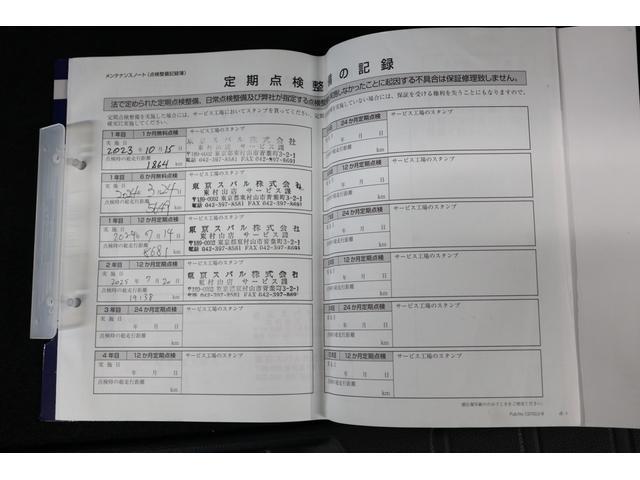 メンテナンスノート（点検整備記録簿）
定期点検整
法で定められた定期点検整備、日常点検整備及び弊社が指定する点検整
定期点検整備を実施した場合には、サービス工場においてスタンプを貰ってください。
確実に実施してください。
1年目 1か月無料点検 サービス工場のスタンプ
実施日
2023年10月15日
点検時の総走行距離
1864 km
東京スバル株式会社
東村山店 サービス課
〒189-0002 東京都東村山市青葉町3-2-1
電話 042-397-8581 FAX 042-397-8691
1年目 6か月無料点検 サービス工場のスタンプ
実施日
2024年3月24日
点検時の総走行距離
km
東京スバル株式会社
東村山店 サービス課
〒189-0002 東京都東村山市青葉町3-2-1
電話 042-397-8581 FAX 042-397-8691
1年目 12か月定期点検 サービス工場のスタンプ
実施日
2024年7月14日
点検時の総走行距離
8681 km
東京スバル株式会社
東村山店 サービス課
〒189-0002 東京都東村山市青葉町3-2-1
電話 042-397-8581 FAX 042-397-8691
2年目 12か月定期点検 サービス工場のスタンプ
実施日
2025年7月20日
点検時の総走行距離
19138 km
東京スバル株式会社
東村山店 サービス課
〒189-0002 東京都東村山市青葉町3-2-1
電話 042-397-8581 FAX 042-397-8691
3年目 24か月定期点検 サービス工場のスタンプ
実施日
年 月 日
点検時の総走行距離
km
4年目 12か月定期点検 サービス工場のスタンプ
実施日
年 月 日
点検時の総走行距離
km
備の記録
施しなかったことに起因する不具合は保証修理致しません。
実施していない場合には、保証を受ける権利を失うことにもなりますので、
24か月定期点検 サービス工場のスタンプ
年 月 日
km
12か月定期点検 サービス工場のスタンプ
年 月 日
km
24か月定期点検 サービス工場のスタンプ
年 月 日
km
12か月定期点検 サービス工場のスタンプ
年 月 日
km
24か月定期点検 サービス工場のスタンプ
年 月 日
km
12か月定期点検 サービス工場のスタンプ
年 月 日
km